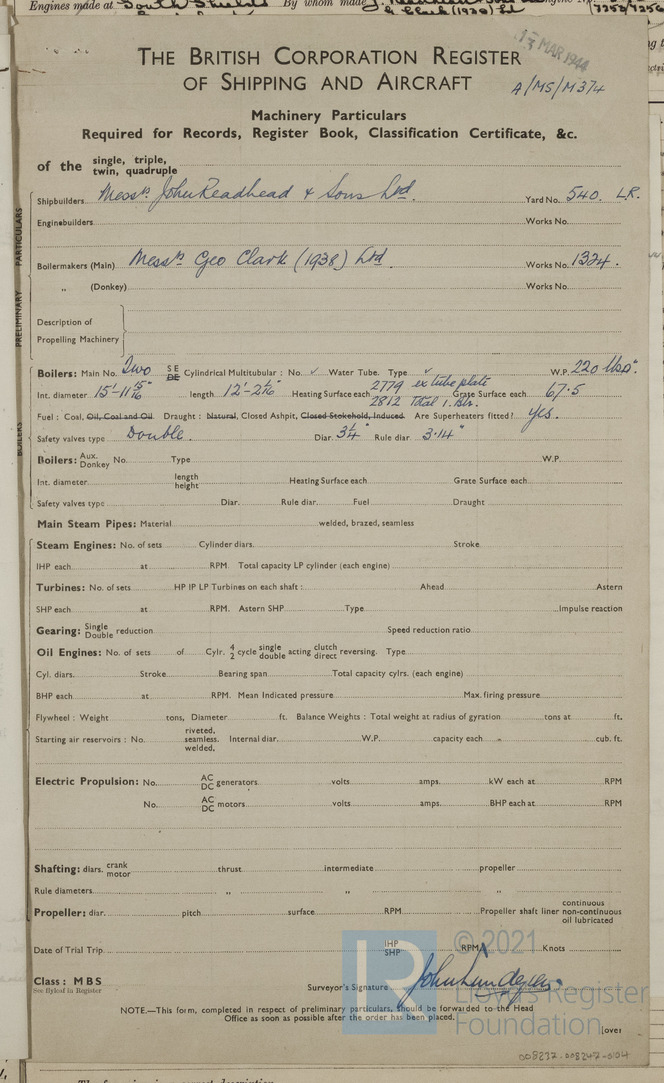 Engines made at South Shields By whom made
& Clark (1938) Ltd 7253/7256
THE BRITISH CORPORATION REGISTER
OF SHIPPING AND AIRCRAFT
13 MAR 1944
A/MS/M374
Machinery Particulars
Required for Records, Register Book, Classification Certificate, &c.
of the single, triple, twin, quadruple
Shipbuilders Messrs John Readhead & Sons Ltd. Yard No. 540. L.R.
Enginebuilders Works No.
Boilermakers (Main) Messrs Geo Clark (1938) Ltd. Works No. 1324.
„ (Donkey) Works No.
PRELIMINARY PARTICULARS
Description of
Propelling Machinery
BOILERS
Boilers: Main No. Two SE DE Cylindrical Multitubular: No. ✓ Water Tube. Type ✓ W.P. 220 lbs□".
2779 ex tube plate
Int. diameter 15'-11 15/16" length 12'-2 1/16" Heating Surface each 2812 Total 1. Blr. Grate Surface each 67·5
Fuel: Coal, Oil, Coal and Oil Draught: Natural, Closed Ashpit, Closed Stokehold, Induced. Are Superheaters fitted? yes.
Safety valves type Double. Diar. 3 1/4" Rule diar. 3·14"
Boilers: Aux. Donkey No. Type W.P.
Int. diameter length height Heating Surface each Grate Surface each
Safety valves type Diar. Rule diar. Fuel Draught
Main Steam Pipes: Material welded, brazed, seamless
Steam Engines: No. of sets Cylinder diars. Stroke
IHP each at RPM. Total capacity LP cylinder (each engine)
Turbines: No. of sets HP IP LP Turbines on each shaft: Ahead Astern
SHP each at RPM. Astern SHP Type Impulse reaction
Gearing: Single Double reduction Speed reduction ratio
Oil Engines: No. of sets of Cylr. 4 2 cycle single double acting clutch direct reversing. Type
Cyl. diars. Stroke Bearing span Total capacity cylrs. (each engine)
BHP each at RPM. Mean Indicated pressure Max. firing pressure
Flywheel: Weight tons, Diameter ft. Balance Weights: Total weight at radius of gyration tons at ft.
Starting air reservoirs: No. riveted, seamless. welded, Internal diar. W.P. capacity each cub. ft.
Electric Propulsion: No. AC DC generators volts amps. kW each at RPM
No. AC DC motors volts amps. BHP each at RPM
Shafting: diars. crank motor thrust intermediate propeller
Rule diameters „ „ „
Propeller: diar. pitch surface RPM Propeller shaft liner continuous non-continuous oil lubricated
Date of Trial Trip IHP SHP RPM Knots
Class: MBS
See flyleaf in Register
Surveyor's Signature
NOTE.—This form, completed in respect of preliminary particulars, should be forwarded to the Head
Office as soon as possible after the order has been placed.
[over
LR © 2021
Lloyd's Register
Foundation
008237-008247-0104